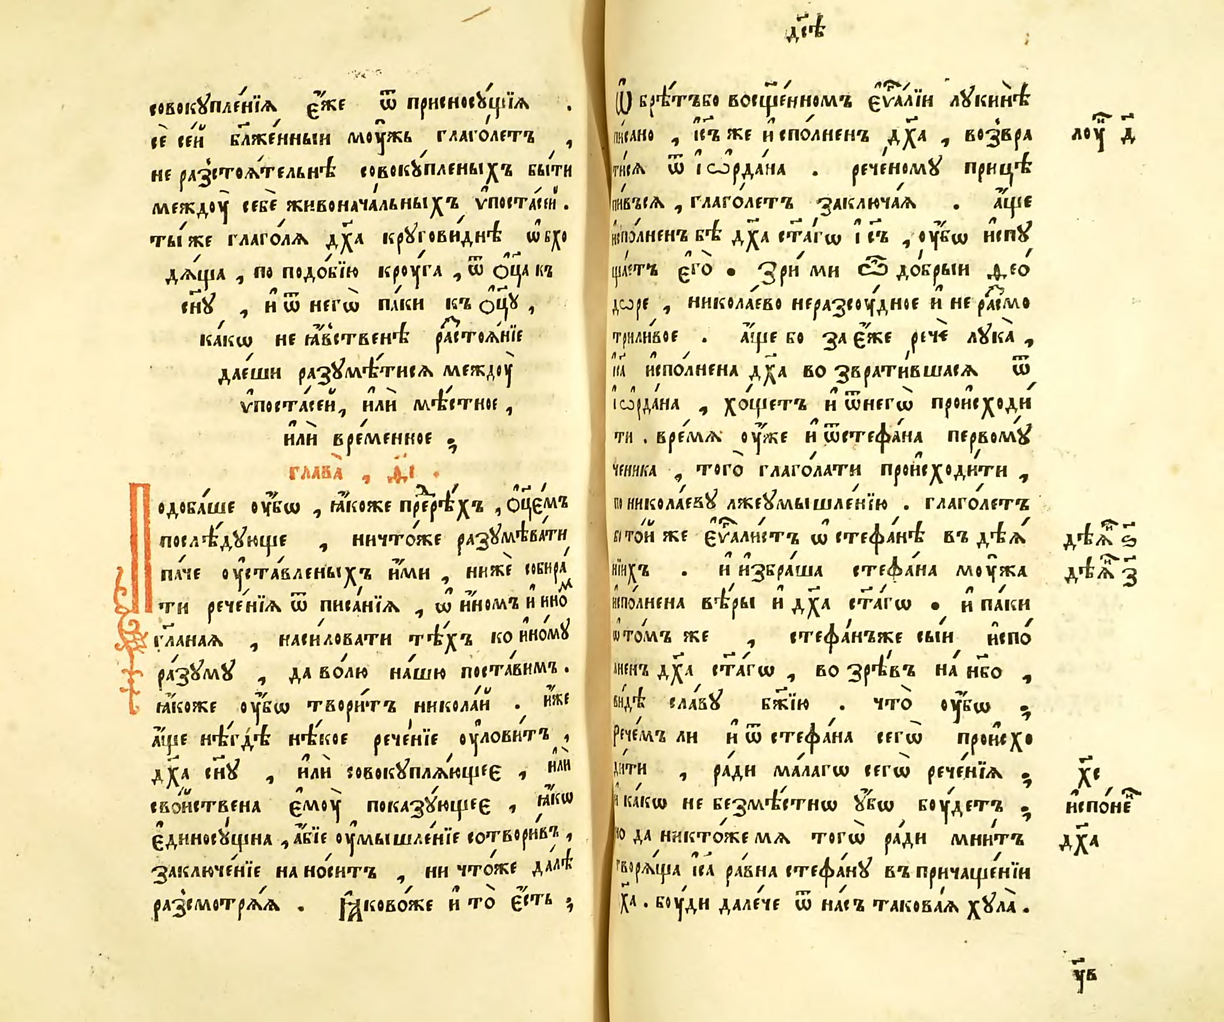 совокꙋпле́нїѧ є҆́же ѿ присносꙋ́щїѧ .
сѐ се́й бл҃же́нныи моу́жь глаго́летъ ,
не раз̾стоѧ́тельнѣ совокꙋ́пленыхъ бы́ти
междоу̀ себѐ живонача́льныхъ ѵ҆поста́сей .
ты́ же глаго́лѧ дх҃а крꙋгови́днѣ ѡ҆бхо
дѧ́ща , по подо́бїю крꙋ́га , ѿ ѻ҆ц҃а къ
сн҃ꙋ , и҆ ѿ негѡ̀ па́ки къ ѻ҆ц҃ꙋ ,
ка́кѡ не ꙗ҆́вственѣ растоѧ́нїе
дае́ши разꙋмѣ́тисѧ междоу̀
ѵ҆поста́сей , и҆лѝ мѣ́стное ,
и҆лѝ вре́менное ;
глава̀ , д҃і .
Подоба́ше оу҆́бѡ , ꙗ҆́коже пререко́хъ , ѻ҆ц҃е́мъ
послѣ́дꙋюще , ничто́же разꙋмѣва́ти
па́че оу҆ста́вленыхъ и҆́ми , нижѐ собира́
ти рече́нїѧ ѿ писа́нїѧ , ѡ҆ и҆́номъ и҆ ино́м
гл҃анаѧ , наси́ловати тѣ́хъ ко и҆но́мꙋ
ра́зꙋмꙋ , да во́лю на́шю поста́вимъ .
ꙗ҆́коже оу҆́бѡ твори́тъ никола́й . и҆́же
а҆́ще нѣ́гдѣ нѣ́кое рече́нїе оу҆лови́тъ ,
дх҃а сн҃ꙋ , и҆лѝ совокꙋплѧ́ющеє , и҆лѝ
сво́йствена є҆моу̀ показꙋ́ющеє , ꙗ҆́кѡ
є҆диносꙋ́щна , а҆́бїе оу҆мышле́нїе сотвори́въ ,
заключе́нїе нано́ситъ , ничто́же да́лѣ
раз̾смотрѧ́ѧ . Ꙗ҆ково́же и҆ то̀ є҆́сть ;
дс҃ѣ
Ѡ҆брѣ́тъ бо восщ҃е́нномъ є҆ѵа҃лїи лꙋ́кинѣ
пи́сано , і҆с҃ъ же и҆спо́лненъ дх҃а , воз̾вра
ти́сѧ ѿ і҆ѡрда́на . рече́номꙋ прицѣ
пи́въсѧ , глаго́летъ заключа́ѧ . а҆́ще
и҆спо́лненъ бѣ̀ дх҃а ст҃а́гѡ і҆с҃ъ , оу҆́бѡ и҆спꙋ
ща́етъ є҆го̀ . Зри́ ми ѽ до́брыи ѳео́
дѡре , никола́ево неразсꙋ́дное и҆ не расмо
три́ливое . а҆́ще бо за є҆́же речѐ лꙋка̀ ,
і҆с҃а и҆спо́лнена дх҃а возврати́вшасѧ ѿ
і҆ѡрда́на , хо́щетъ и҆ ѿ негѡ̀ происходи́
ти . вре́мѧ оу҆́же и҆ ѿ стефа́на первомꙋ́
ченика , того̀ глаго́лати происходи́ти ,
по никола́евꙋ лжеꙋмышле́нїю . глаго́летъ
бо то́й же є҆ѵа҃ли́стъ ѡ҆ стефа́нѣ въ дѣѧ́
нїихъ . и҆ и҆збра́ша стефа́на моу́жа
и҆спо́лнена вѣ́ры и҆ дх҃а ст҃а́гѡ . и҆ па́ки
ѡ҆ то́мъ же , стефа́нъ же сы́и и҆спо́
лненъ дх҃а ст҃а́гѡ , возрѣ́въ на нб҃о ,
ви́дѣ сла́вꙋ бж҃їю . что̀ оу҆́бѡ ;
Рече́мъ ли и҆ ѿ стефа́на сегѡ̀ происхо
ди́ти , ра́ди ма́лагѡ сегѡ̀ рече́нїѧ ;
и҆ ка́кѡ не безмѣ́стнѡ ᲂу҆́бѡ бꙋ́детъ ;
но да никто́же мѧ тогѡ̀ ра́ди мни́тъ
творѧ́ща і҆с҃а ра́вна стефа́нꙋ въ причаще́нїи
дх҃а . бꙋ́ди дале́че ѿ на́съ такова́ѧ хꙋла̀ .
лоу҃ д҃
дѣѧ҃ ѕ҃
дѣѧ҃ з҃
хс҃
и҆спо́не
дх҃а
ꙋв҃